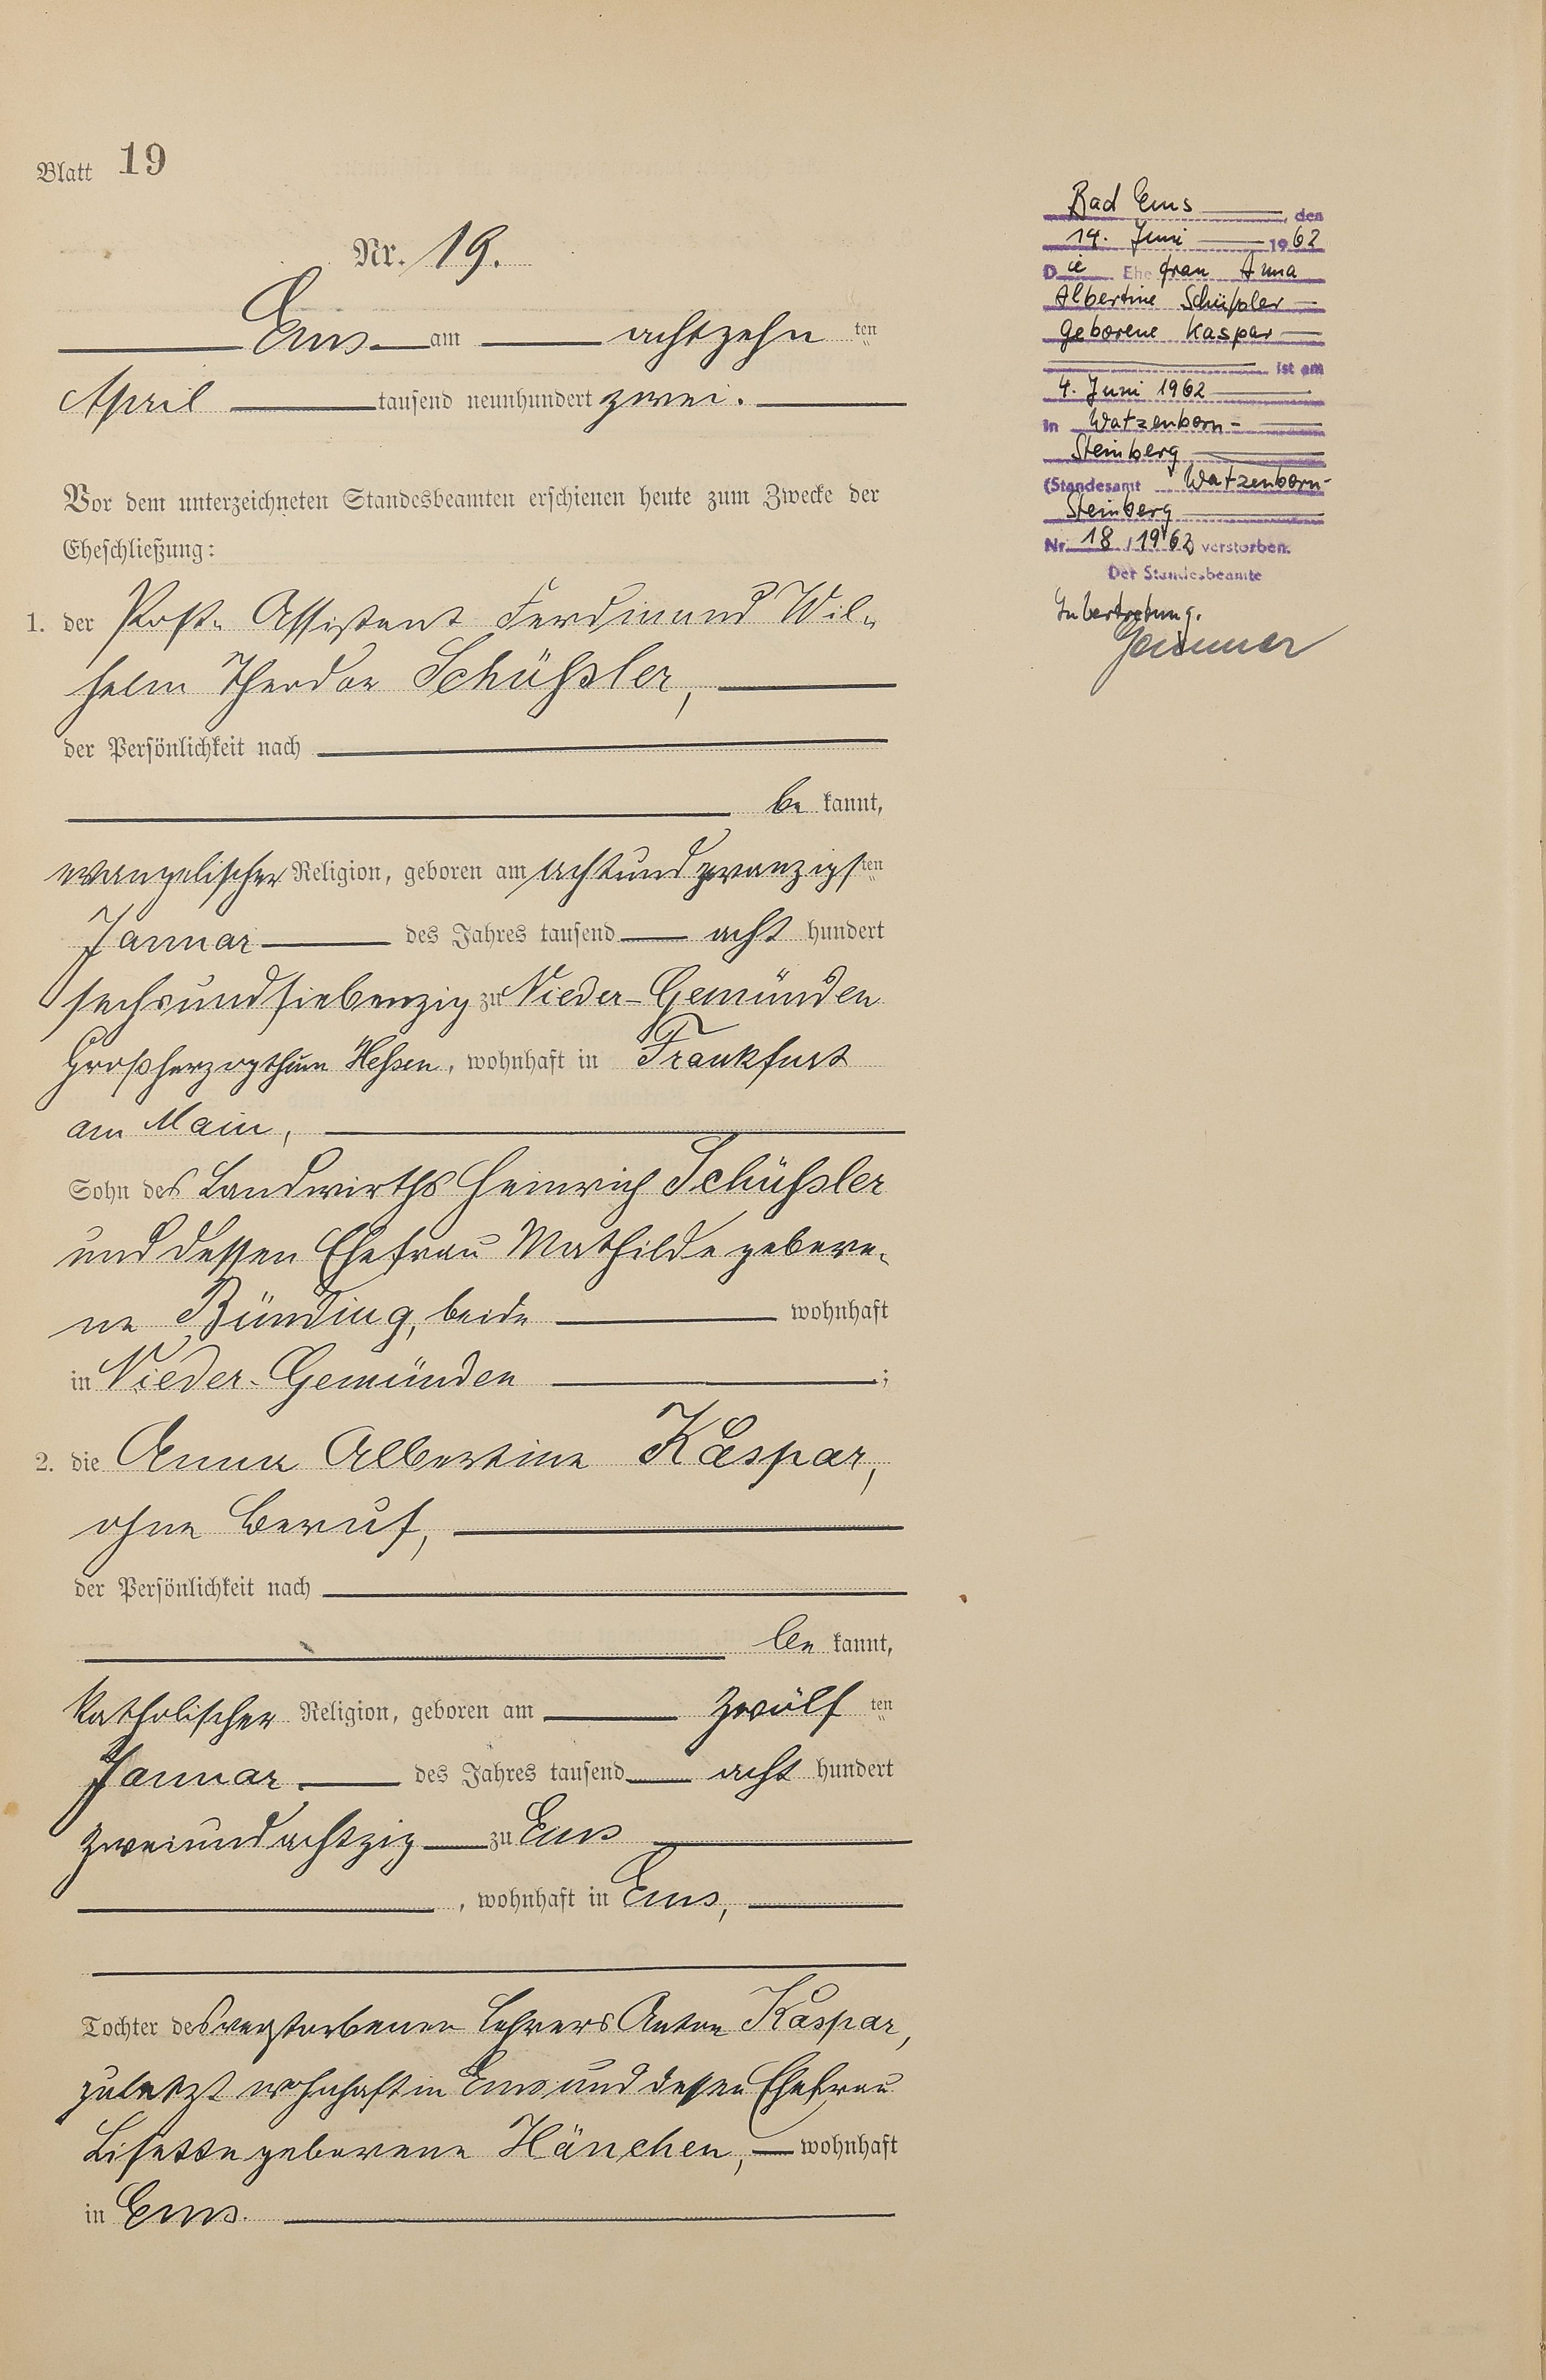 Blatt 19
Nr. 19.
Ems am achtzehn ten
April tausend neunhundert zwei.
Vor dem unterzeichneten Standesbeamten erschienen heute zum Zwecke der
Eheschließung:
1. der Post-Assistent Ferdinand Wil-
helm Theodor Schüßler,
der Persönlichkeit nach
be kannt,
evangelischer Religion, geboren am achtundzwanzigsten
Januar des Jahres tausend acht hundert
sechsundsiebenzig zu Nieder-Gemünden
Großherzogthum Hessen, wohnhaft in Frankfurt
am Main,
Sohn des Landwirths Heinrich Schüßler
und dessen Ehefrau Mathilde gebore-
ne Bünding, beide wohnhaft
in Nieder-Gemünden ;
2. die Anna Albertine Kaspar,
ohne Beruf,
der Persönlichkeit nach
be kannt,
katholischer Religion, geboren am zwölf ten
Januar des Jahres tausend acht hundert
zweiundachtzig zu Ems
, wohnhaft in Ems,
Tochter des verstorbenen Lehrers Anton Kaspar,
zuletzt wohnhaft in Ems und dessen Ehefrau
Lisette geborene Hänchen, wohnhaft
in Ems.
Bad Ems, den
14. Juni 1962
Die Ehefrau Anna
Albertine Schüßler
geborene Kaspar
ist am
4. Juni 1962
in Watzenborn-
Steinberg
(Standesamt Watzenborn-
Steinberg
Nr. 18/1962) verstorben.
Der Standesbeamte
In Vertretung.